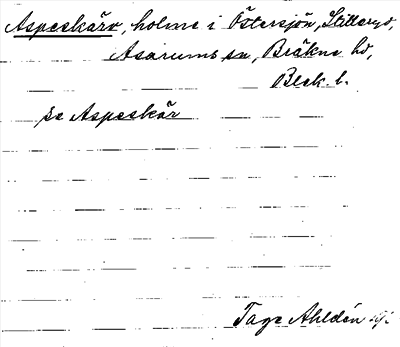 Aspeskärv, holme i Östersjön, Stilleryd,
Asarums sn, Bräkne hd,
Blek. l.
se Aspeskär
Tage Ahldén